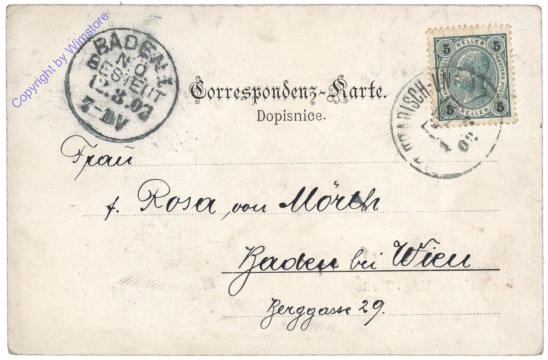 Copyright by Wimstore
BADEN 1
N.Ö.
BESTELLT
12.8.02
7-IV
5 5
HELLER
5 5
HELLER
HRADISCH
02
Correspondenz-Karte.
Dopisnice.
Frau
f. Rosa von Mörth
Baden bei Wien
Berggasse 29.